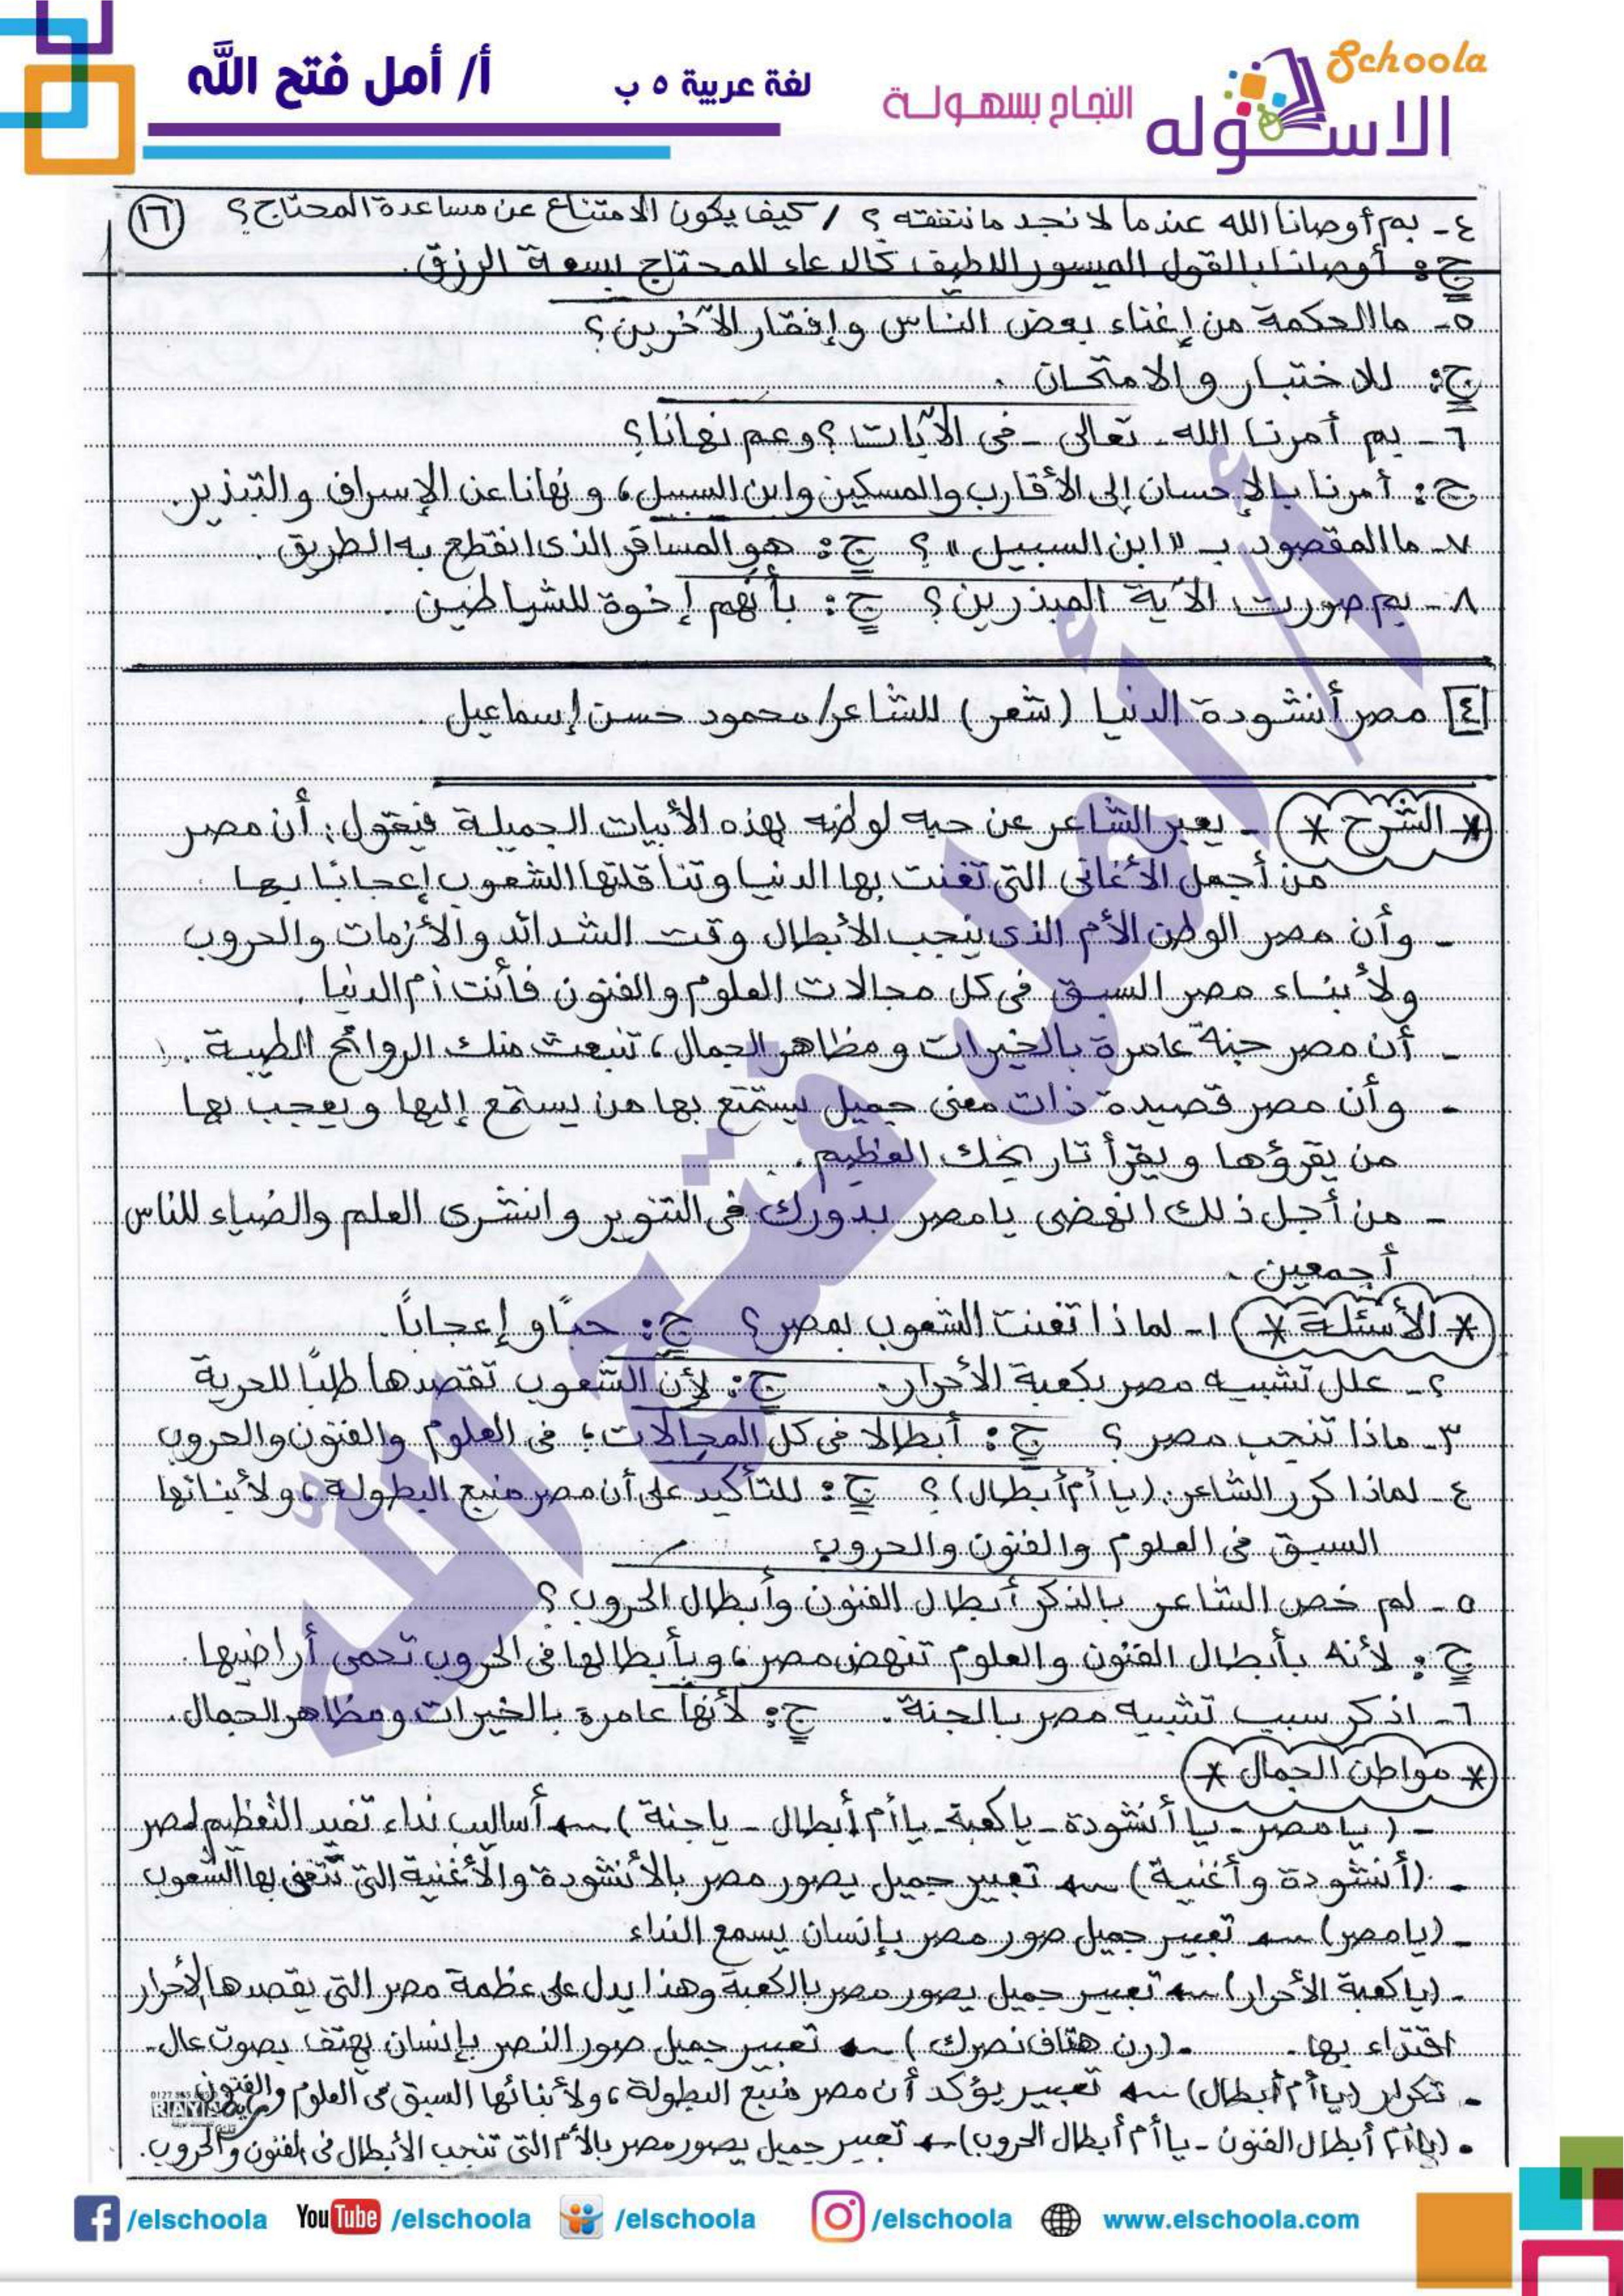 Schoola
الاسكوله
النجاح بسهولة
لغة عربية ٥ ب
أ/ أمل فتح الله
١٦
٤- بم أوصانا الله عندما لا نجد ما ننفقه ؟ / كيف يكون الامتناع عن مساعدة المحتاج ؟
ج: أوصانا بالقول الميسور اللطيف كالدعاء للمحتاج بسعة الرزق.
٥- ما الحكمة من إغناء بعض الناس وإفقار الآخرين؟
ج: للاختبار والامتحان .
٦- بم أمرنا الله - تعالى - فى الآيات ؟ وعم نهانا؟
ج: أمرنا بالإحسان إلى الأقارب والمسكين وابن السبيل، ونهانا عن الإسراف والتبذير.
٧- ما المقصود بـ "ابن السبيل" ؟ ج: هو المسافر الذى انقطع به الطريق .
٨- بم صورت الآية المبذرين ؟ ج: بأنهم إخوة للشياطين .
٤ مصر أنشودة الدنيا (شعر) للشاعر/ محمود حسن إسماعيل .
* الشرح * - يعبر الشاعر عن حبه لوطنه بهذه الأبيات الجميلة فيقول: أن مصر
من أجمل الأغانى التى تغنت بها الدنيا وتناقلتها الشعوب إعجابًا بها
- وأن مصر الوطن الأم الذى ينجب الأبطال وقت الشدائد والأزمات والحروب
ولأبناء مصر السبق فى كل مجالات العلوم والفنون فأنت أم الدنيا .
- أن مصر جنة عامرة بالخيرات ومظاهر الجمال، تنبعث منك الروائح الطيبة .
- وأن مصر قصيدة ذات معنى جميل يستمتع بها من يستمع إليها ويعجب بها
من يقرؤها ويقرأ تاريخك العظيم .
- من أجل ذلك انهضى يا مصر بدورك فى التنوير وانشرى العلم والضياء للناس
أجمعين .
* الأسئلة * ١- لماذا تغنت الشعوب بمصر ؟ ج: حبًا وإعجابًا.
٢- علل تشبيه مصر بكعبة الأحرار. ج: لأن الشعوب تقصدها طلبًا للحرية
٣- ماذا تنجب مصر ؟ ج: أبطالا فى كل المجالات؛ فى العلوم والفنون والحروب
٤- لماذا كرر الشاعر (يا أم أبطال) ؟ ج: للتأكيد على أن مصر منبع البطولة، ولأبنائها
السبق فى العلوم والفنون والحروب
٥- لم خص الشاعر بالذكر أبطال الفنون وأبطال الحروب ؟
ج: لأنه بأبطال الفنون والعلوم تنهض مصر، وبأبطالها فى الحروب تحمى أراضيها.
٦- اذكر سبب تشبيه مصر بالجنة. ج: لأنها عامرة بالخيرات ومظاهر الجمال.
* مواطن الجمال *
- (يا مصر - يا أنشودة - يا كعبة - يا أم أبطال - يا جنة) ← أساليب نداء تفيد التعظيم لمصر
- (أنشودة وأغنية) ← تعبير جميل يصور مصر بالأنشودة والأغنية التى تتغنى بها الشعوب
- (يا مصر) ← تعبير جميل صور مصر بإنسان يسمع النداء
- (يا كعبة الأحرار) ← تعبير جميل يصور مصر بالكعبة وهذا يدل على عظمة مصر التى يقصدها الأحرار
اقتداء بها. - (رن هتاف نصرك) ← تعبير جميل صور النصر بإنسان يهتف بصوت عال.
- تكرار (يا أم أبطال) ← تعبير يؤكد أن مصر منبع البطولة، ولأبنائها السبق فى العلوم والفنون
- (يا أم أبطال الفنون - يا أم أبطال الحروب) ← تعبير جميل يصور مصر بالأم التى تنجب الأبطال فى الفنون والحروب.
أ/ أمل فتح الله
/elschoola YouTube /elschoola /elschoola /elschoola www.elschoola.com